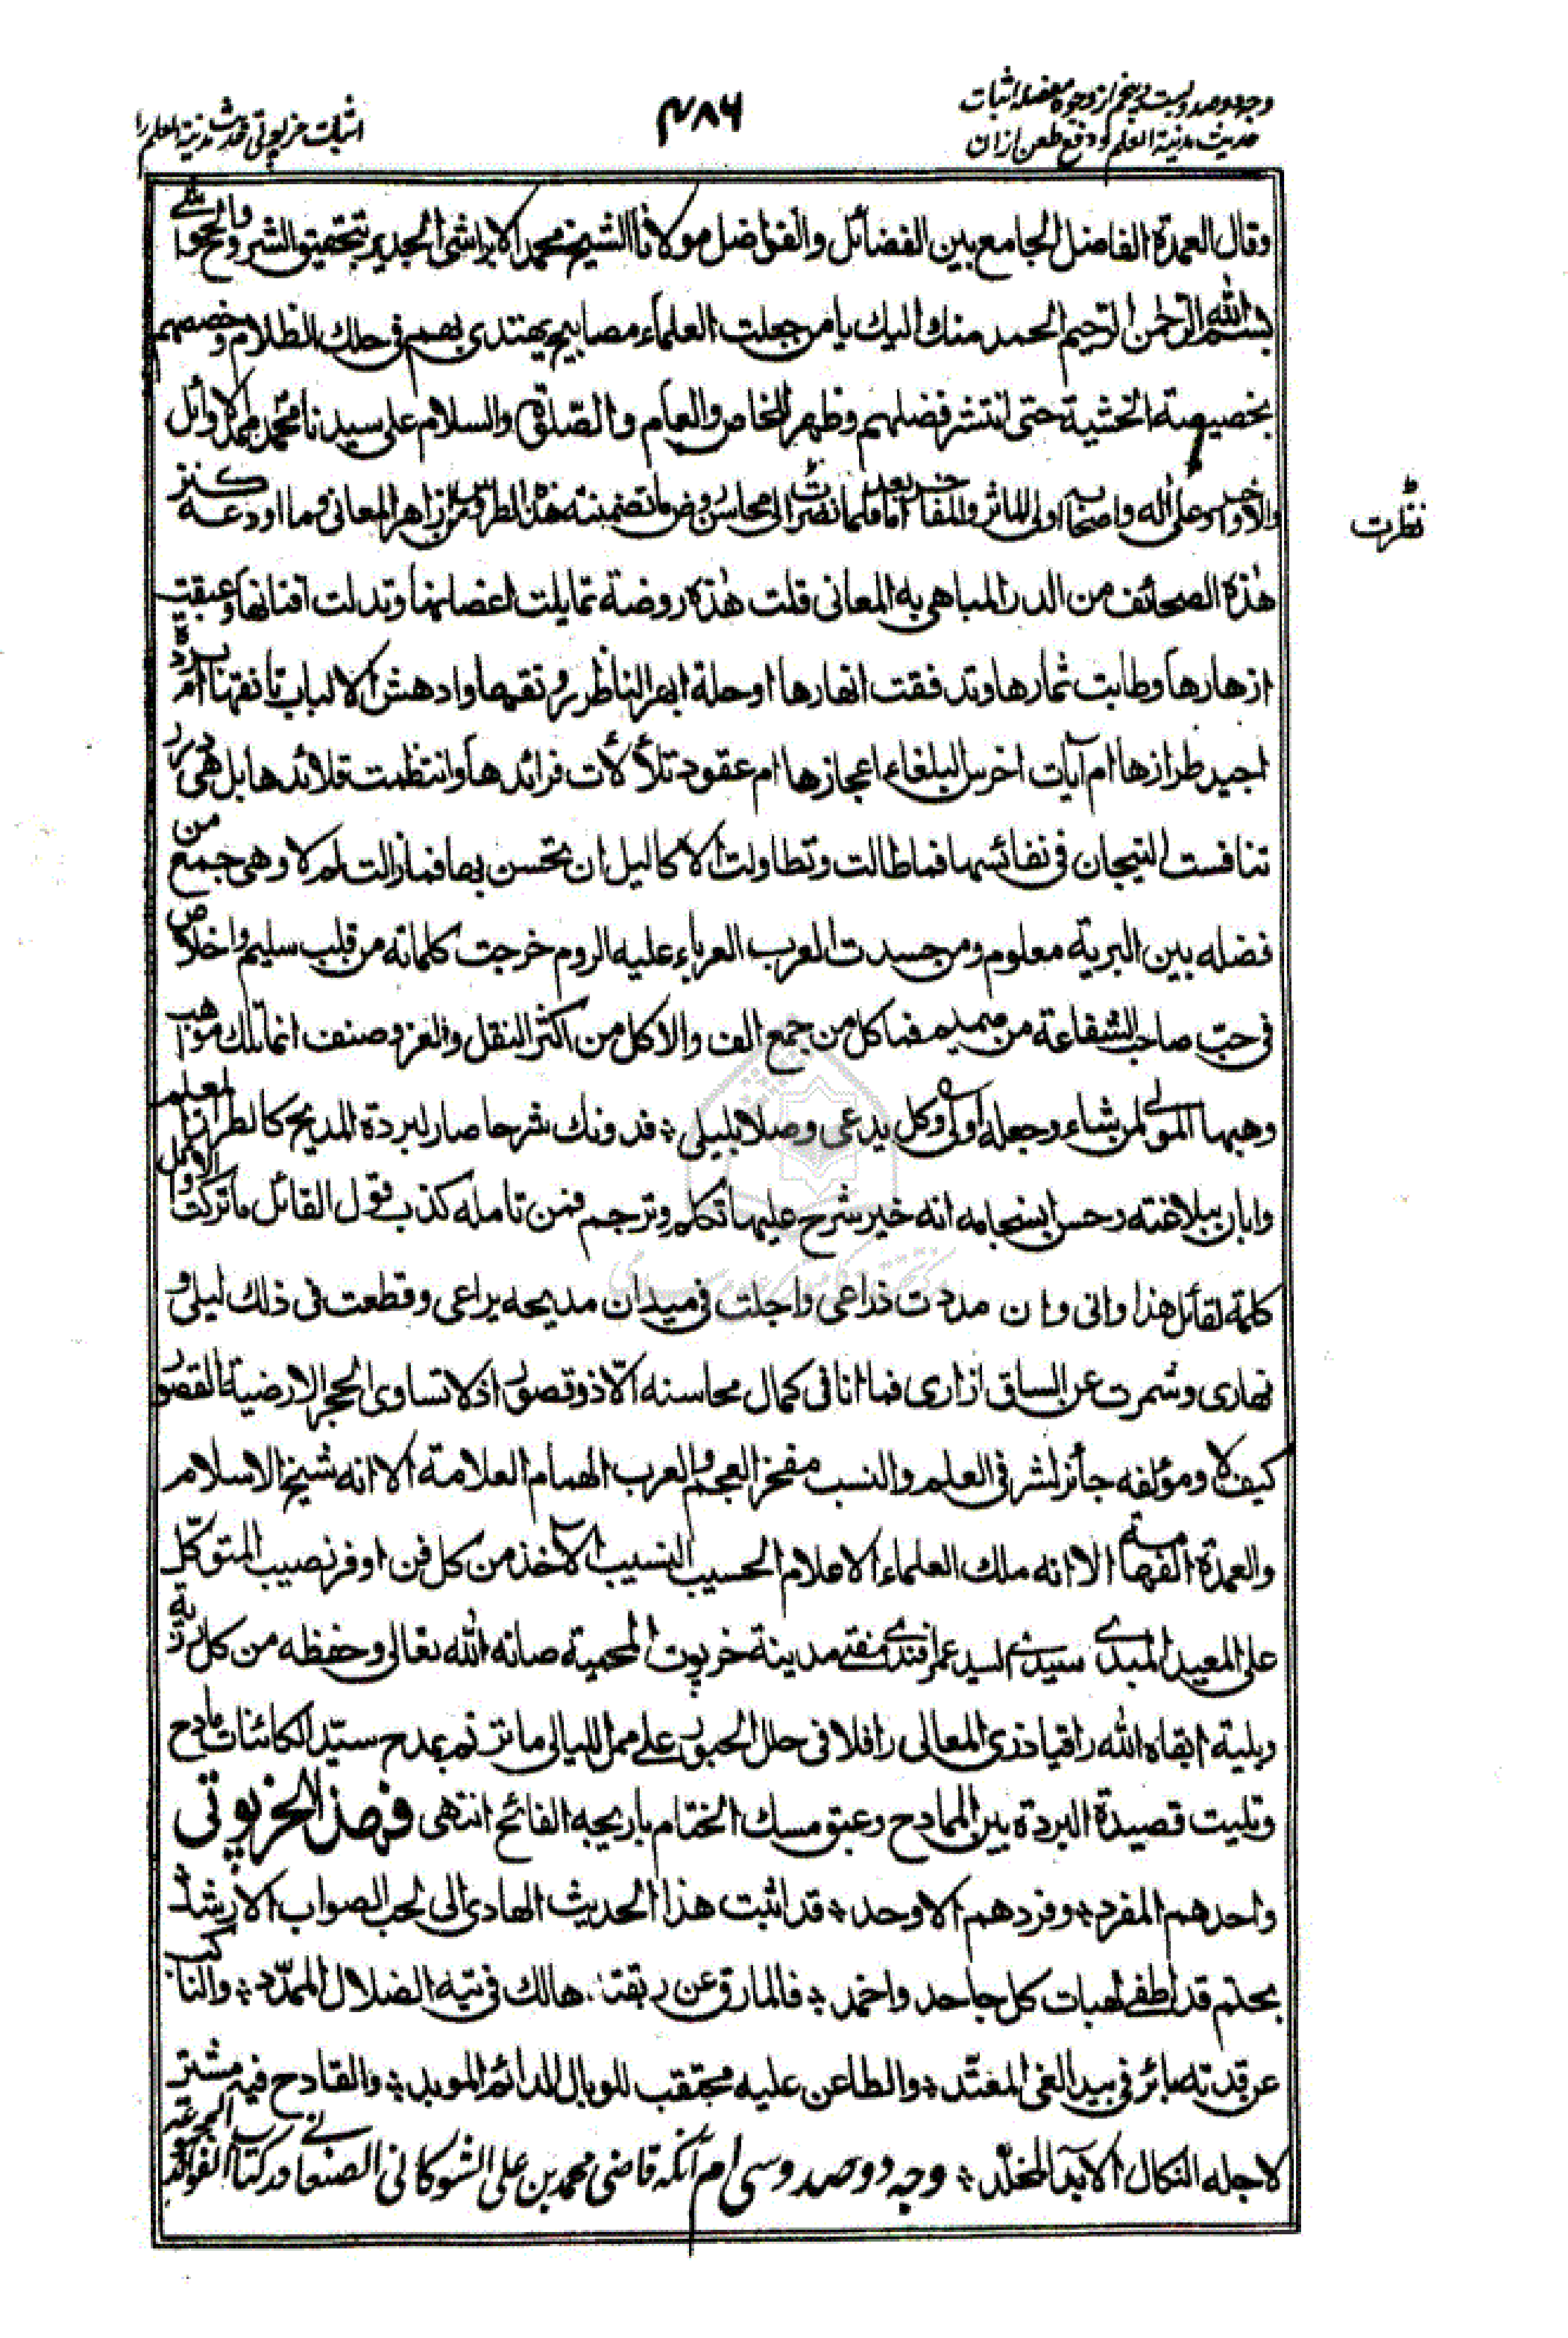 وجه دوصد و بست و پنجم از وجوه مفصله اثبات
حدیث مدینة العلم و دفع طعن ازان
۴۸۶
اثبات خرپوتی حدیث مدینة العلم را
وقال العمدة الفاضل الجامع بين الفضائل والفواضل مولانا الشيخ محمد الابراشى الجدير بتحقيق الشروح والحواشى
بسم الله الرحمن الرحيم الحمد منك اليك يا من جعلت العلماء مصابيح يهتدى بهم فى حلك الظلام وخصصتهم
بخصيصة الخشية حتى انتشر فضلهم وظهر للخاص والعام والصلوة والسلام على سيدنا محمد الاوائل
والاواخر وعلى اله واصحابه اولى المآثر والمفاخر اما بعد فلما نضرت الى محاسن روض ما تضمنته هذه الطروس من زاهر المعانى وما اودعته كنز
نظرت
هذه الصحائف من الدر المباهى به المعانى قلت هذه روضة تمايلت اغصانها وتدلت افنانها وعبقت
ازهارها وطابت ثمارها وتدفقت انهارها او حلة ابهر الناظرين رونقها وادهش الالباب تانقها ام برد
اجيد طرازها ام آيات اخرس البلغاء اعجازها ام عقود تلألأت فرائدها وانتظمت قلائدها بل هى درر
تنافست التيجان فى نفائسها فما طالت وتطاولت الاكاليل ان تحسن بها فما زالت لم لا وهى جمع من
فضله بين البرية معلوم ومن حسدت العرب العرباء عليه الروم خرجت كلماته من قلب سليم واخلاص
فى حب صاحب الشفاعة من صميم فما كل من جمع الف والا كل من اكثر النقل والعزو صنف انما تلك مواهب
وهبها المولى لمن شاء وجعله اولى وكل يدعى وصلا بليلى * فدونك شرحا صار لبردة المديح كالطراز المعلم
وابان ببلاغته وحسن انسجامه انه خير شرح عليها تكلم وترجم فمن تامله كذب قول القائل ما تركت الاول
كلمة لقائل هذا وانى وان مددت ذراعى واجلت فى ميدان مديحه يراعى وقطعت فى ذلك ليلى و
نهارى وشمرت عن الساق ازارى فما انا فى كمال محاسنه الا ذو قصور اذ لا تساوى الحجر الارضية القصور
كيف لا ومؤلفه حائز لشرفى العلم والنسب مفخر العجم والعرب الهمام العلامة الا انه شيخ الاسلام
والعمدة الفهامة الا انه ملك العلماء الاعلام الحسيب النسيب الآخذ من كل فن اوفر نصيب المتوكل
على المعيد المبدى سيدى السيد عمر افندى مفتى مدينة خرپوت المحمية صانه الله تعالى وحفظه من كل رزية
وبلية ابقاه الله راقيا ذرى المعالى رافلا فى حلل الحبور على ممر الليالى ما ترنم بمدح سيد الكائنات مادح
وتليت قصيدة البردة بين الممادح وعبق مسك الختام باريجه الفائح انتهى فهذا الخرپوتى
واحدهم المفرد * وفردهم الاوحد * قد اثبت هذا الحديث الهادى الى لحب الصواب الارشد
بحتم قد اطفى لهبات كل جاحد واخمد * فالمارق عن ربقته هالك فى تيه الضلال الممدد * والناكب
عن قدته بائر فى بيد الغى * والطاعن عليه محتقب للوبال الدائم الموبد * والقادح فيه مشتر
لاجله النكال الآبد المخلد * وجه دوصد وسی ام آنکه قاضی محمد بن علی الشوکانی الصنعانی در کتاب الفوائد المجموعة